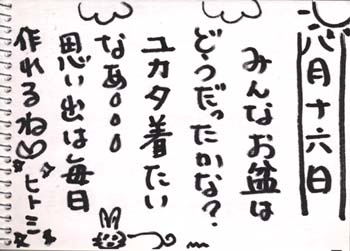 八月十六日
みんなお盆は
どうだったかな?
ユカタ着たい
なあ。。。
思い出は毎日
作れるね♡ヒトミ